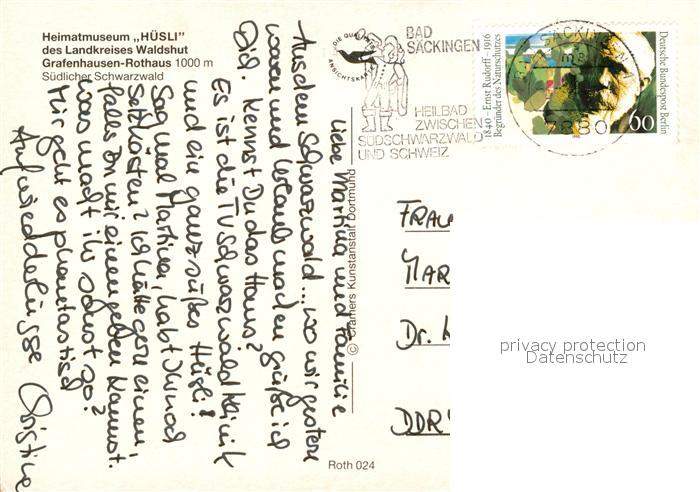 Heimatmuseum „HÜSLI"
des Landkreises Waldshut
Grafenhausen-Rothaus 1000 m
Südlicher Schwarzwald
DIE QUALITÄTS
ANSICHTSKARTE
BAD
SÄCKINGEN
HEILBAD
ZWISCHEN
SÜDSCHWARZWALD
UND SCHWEIZ
1840 - Ernst Rudorff - 1916
Begründer des Naturschutzes
Deutsche Bundespost Berlin
60
7880
Liebe Martina und Familie
Aus dem Schwarzwald... wo wir gestern
waren und Urlaub machen grüße ich
Dich. Kennst Du das Haus?
Es ist die TV Schwarzwaldklinik
und ein ganz süßes Hüsli!
Sag mal Martina, habt Ihr noch
Setzkästen? Ich hätte gern einen,
falls Du mir einen geben kannst.
Was macht ihr sonst so?
Mir geht es phantastisch
Auf wieder Christine
© Cramers Kunstanstalt Dortmund
FRAU
MAR
Dr.
DDR
privacy protection
Datenschutz
Roth 024